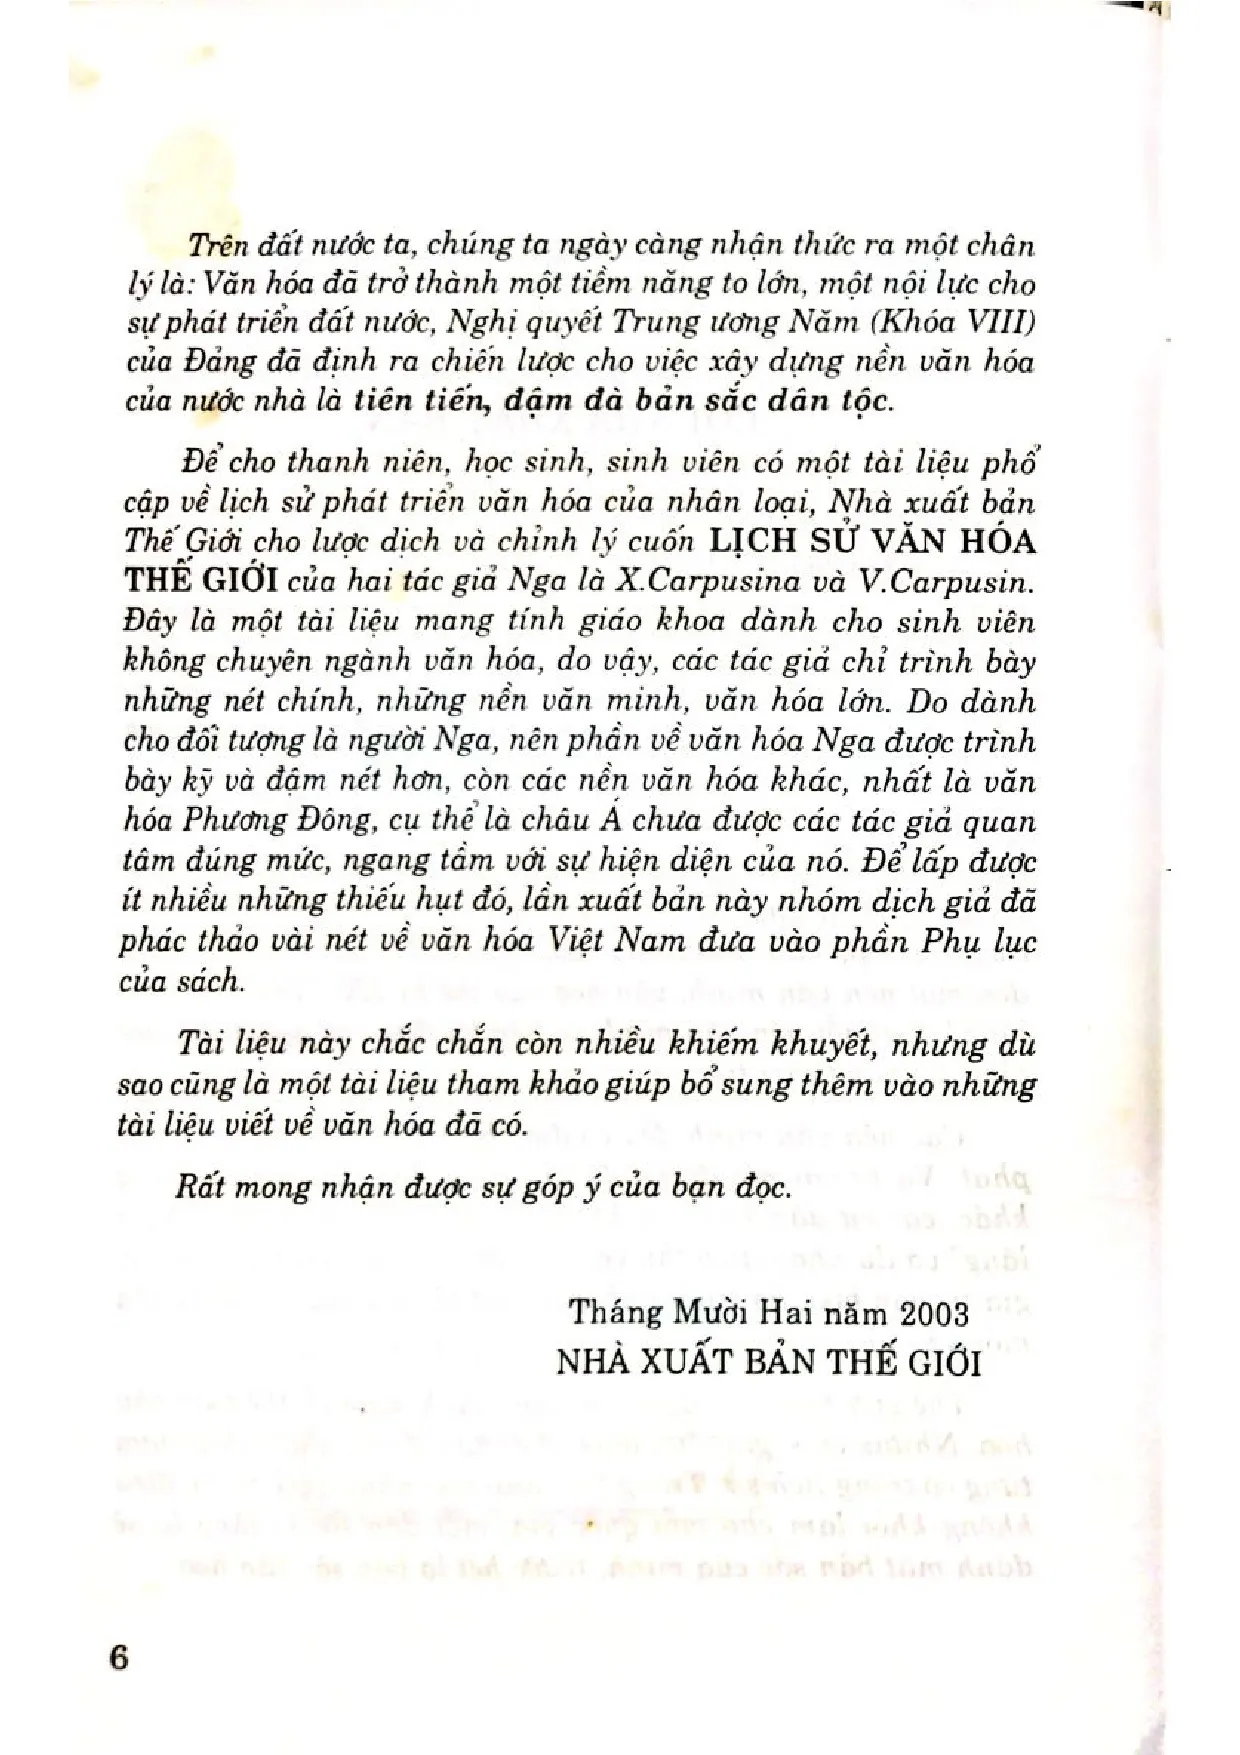 Trên đất nước ta, chúng ta ngày càng nhận thức ra một chân
lý là: Văn hóa đã trở thành một tiềm năng to lớn, một nội lực cho
sự phát triển đất nước, Nghị quyết Trung ương Năm (Khóa VIII)
của Đảng đã định ra chiến lược cho việc xây dựng nền văn hóa
của nước nhà là tiên tiến, đậm đà bản sắc dân tộc.
Để cho thanh niên, học sinh, sinh viên có một tài liệu phổ
cập về lịch sử phát triển văn hóa của nhân loại, Nhà xuất bản
Thế Giới cho lược dịch và chỉnh lý cuốn LỊCH SỬ VĂN HÓA
THẾ GIỚI của hai tác giả Nga là X.Carpusina và V.Carpusin.
Đây là một tài liệu mang tính giáo khoa dành cho sinh viên
không chuyên ngành văn hóa, do vậy, các tác giả chỉ trình bày
những nét chính, những nền văn minh, văn hóa lớn. Do dành
cho đối tượng là người Nga, nên phần về văn hóa Nga được trình
bày kỹ và đậm nét hơn, còn các nền văn hóa khác, nhất là văn
hóa Phương Đông, cụ thể là châu Á chưa được các tác giả quan
tâm đúng mức, ngang tầm với sự hiện diện của nó. Để lấp được
ít nhiều những thiếu hụt đó, lần xuất bản này nhóm dịch giả đã
phác thảo vài nét về văn hóa Việt Nam đưa vào phần Phụ lục
của sách.
Tài liệu này chắc chắn còn nhiều khiếm khuyết, nhưng dù
sao cũng là một tài liệu tham khảo giúp bổ sung thêm vào những
tài liệu viết về văn hóa đã có.
Rất mong nhận được sự góp ý của bạn đọc.
Tháng Mười Hai năm 2003
NHÀ XUẤT BẢN THẾ GIỚI
6